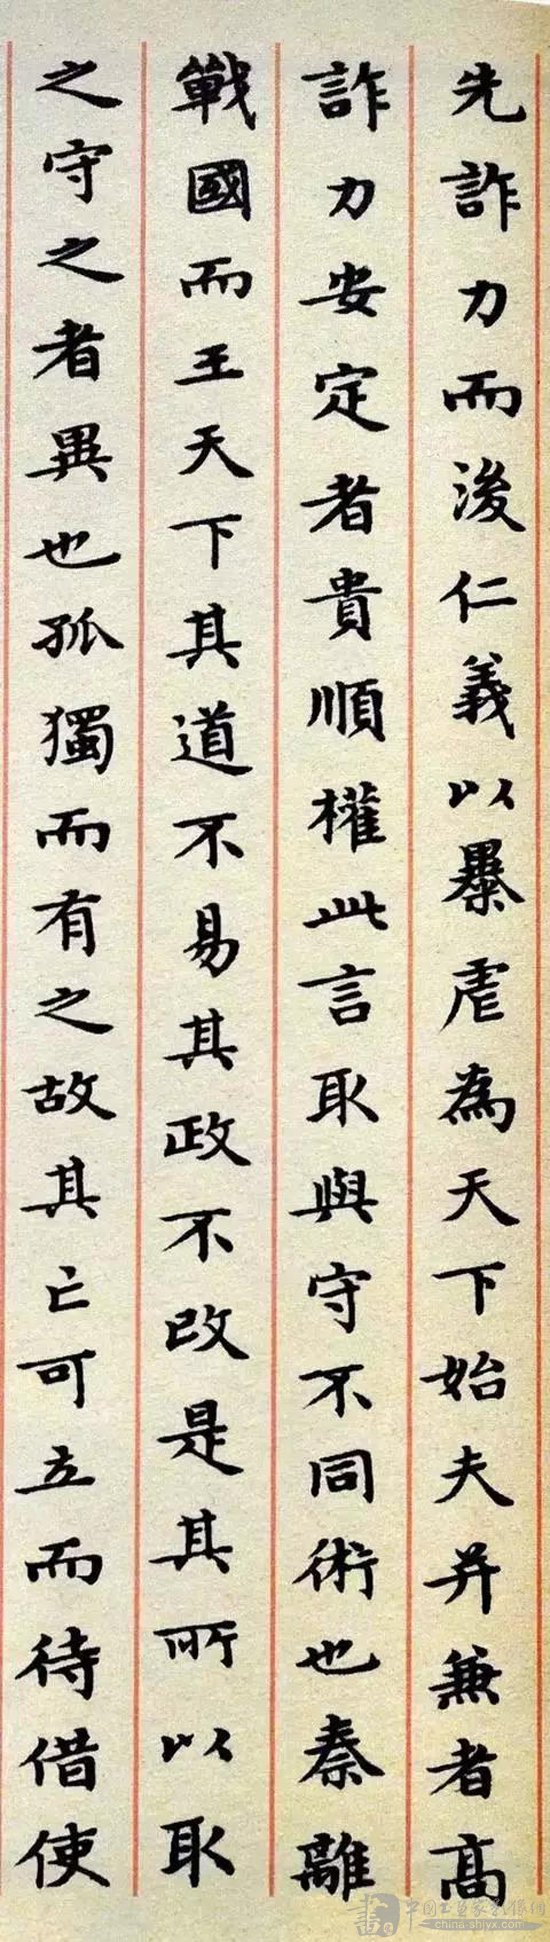 先詐力而後仁義以暴虐為天下始夫并兼者高
詐力安定者貴順權此言取與守不同術也秦離
戰國而王天下其道不易其政不改是其所以取
之守之者異也孤獨而有之故其亡可立而待借使
中国工笔画家影像网
china-shjyx.com